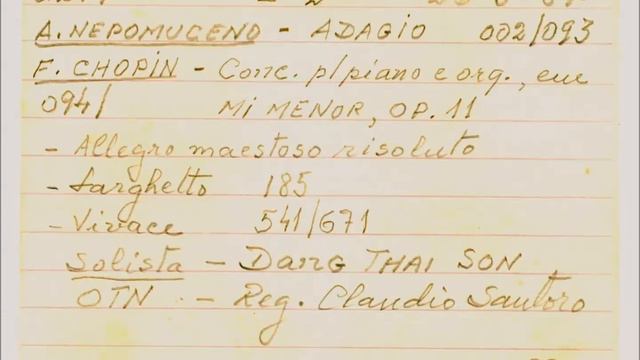 A. NEPOMUCENO - ADAGIO 002/093
F. CHOPIN - Conc. p/piano e orq., em
094/ Mi MENOR, OP. 11
- Allegro maestoso risoluto
- Larghetto 185
- Vivace 541/671
Solista - DANG THAI SON
OTN - Reg. Claudio Santoro